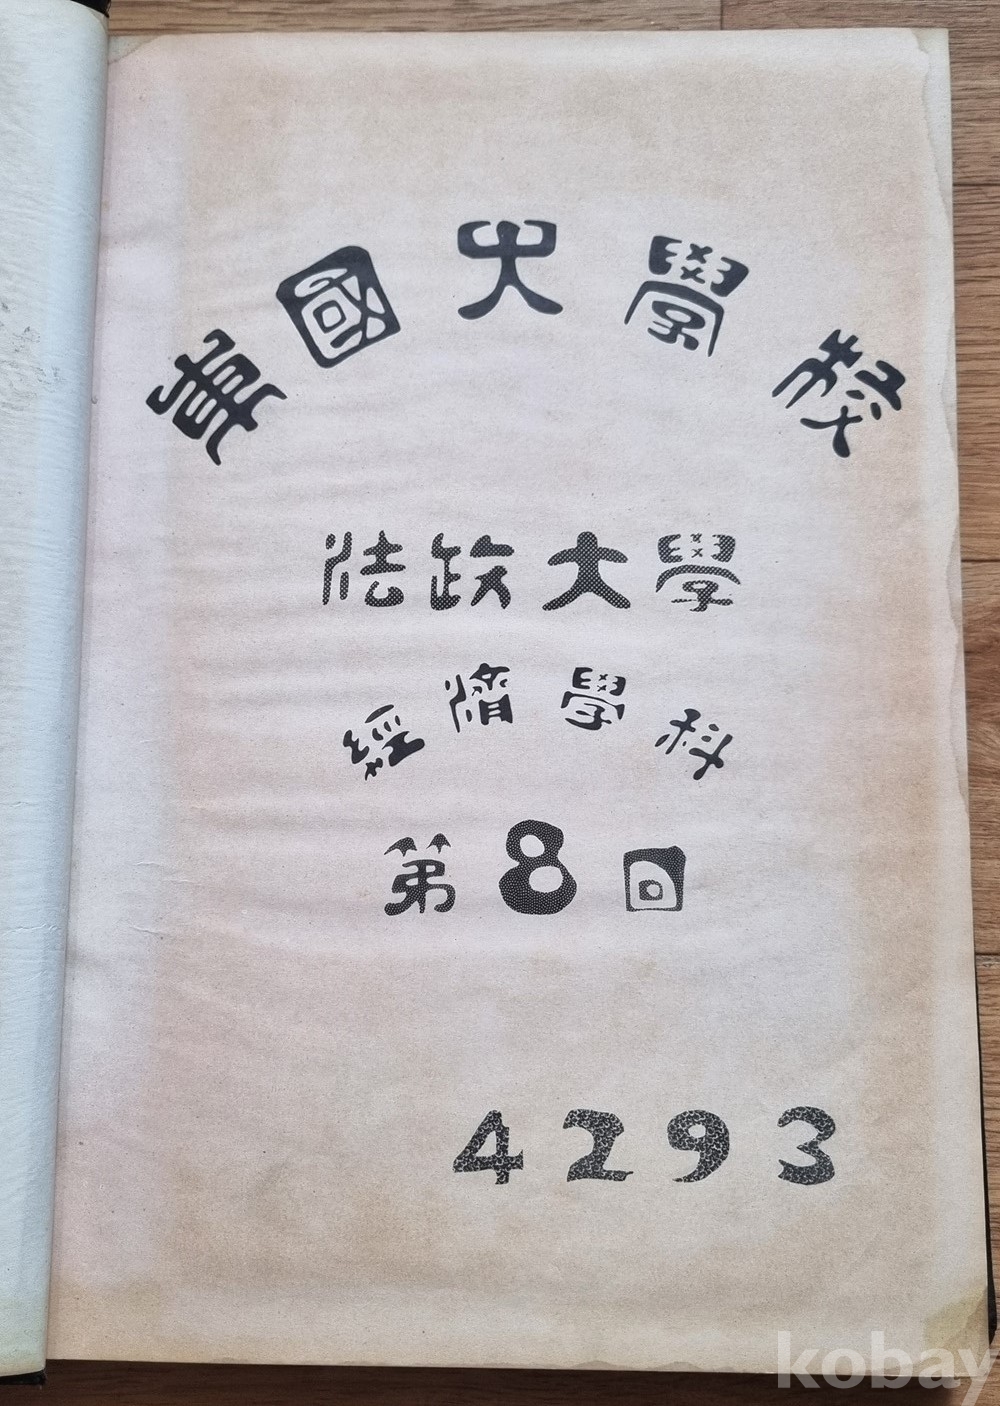 東國大學校
法政大學
經濟學科
第8回
4293
kobay